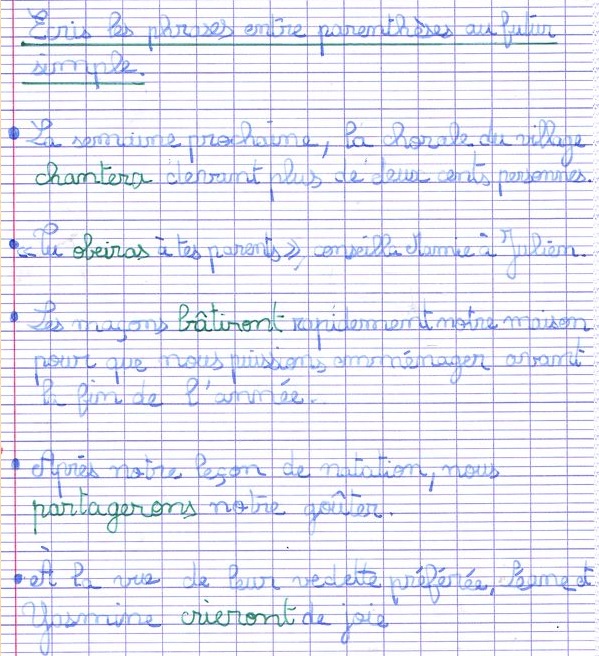 Ecris les phrases entre parenthèses au futur
simple.
• La semaine prochaine, la chorale du village
chantera devant plus de deux cents personnes.
• « Tu obeiras à tes parents », conseilla Mamie à Julien.
• Les maçons bâtiront rapidement notre maison
pour que nous puissions emménager avant
la fin de l'année.
• Après notre leçon de natation, nous
partagerons notre goûter.
• À la vue de leur vedette préférée, et
Yasmine crieront de joie